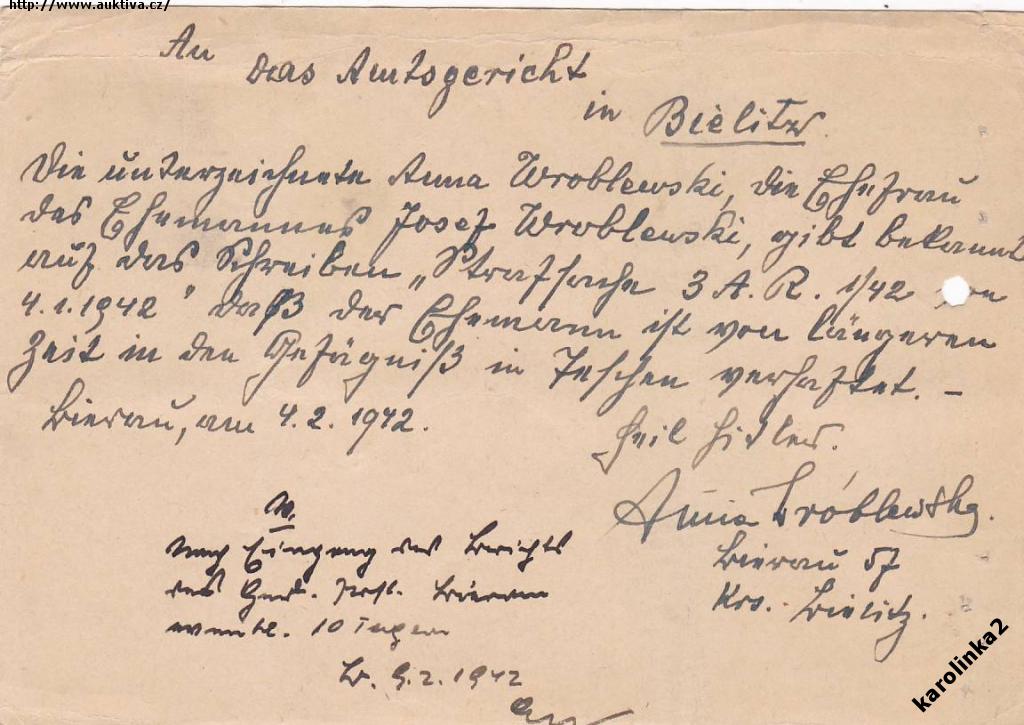 http://www.auktiva.cz/
An
das Amtsgericht
in Bielitz.
Die unterzeichnete Anna Wroblewski, die Ehefrau
des Ehemannes Josef Wroblewski, gibt bekannt
auf das Schreiben „Strafsache 3 A. R. 1/42
4.1.1942" daß der Ehemann ist von längeren
Zeit in den Gefägniß in Teschen verhaftet. –
Bierau, am 4.2.1942.
Heil Hitler.
Anna Wróblewska.
Bierau 57
Krs. Bielitz.
W.
nach Eingang des Berichts
des Gend. Bierau
10 Tagen
B. 9.2.1942
karolinka2